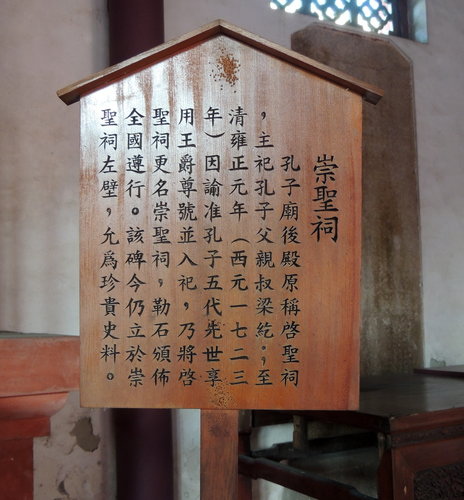 崇聖祠
孔子廟後殿原稱啓聖祠
，主祀孔子父親叔梁紇。，至
清雍正元年（西元一七二三
年）因諭准孔子五代先世享
用王爵尊號並入祀，乃將啓
聖祠更名崇聖祠，勒石頒佈
全國遵行。該碑今仍立於崇
聖祠左壁，允爲珍貴史料。